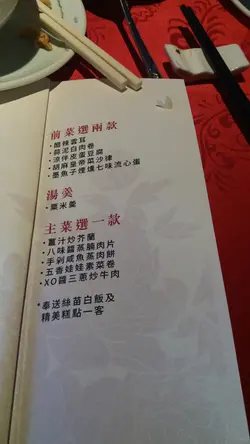 前菜選兩款
•醋辣雲耳
•蒜泥白肉卷
•涼伴皮蛋豆腐
•胡麻皇帝菜沙律
•墨魚子燻燶七味流心蛋
湯羹
•粟米羹
主菜選一款
•薑汁炒芥蘭
•八味醬蒸腩肉片
•手剁咸魚蒸肉餅
•五香娃娃素菜卷
•XO醬三蔥炒牛肉
•奉送絲苗白飯及
精美糕點一客